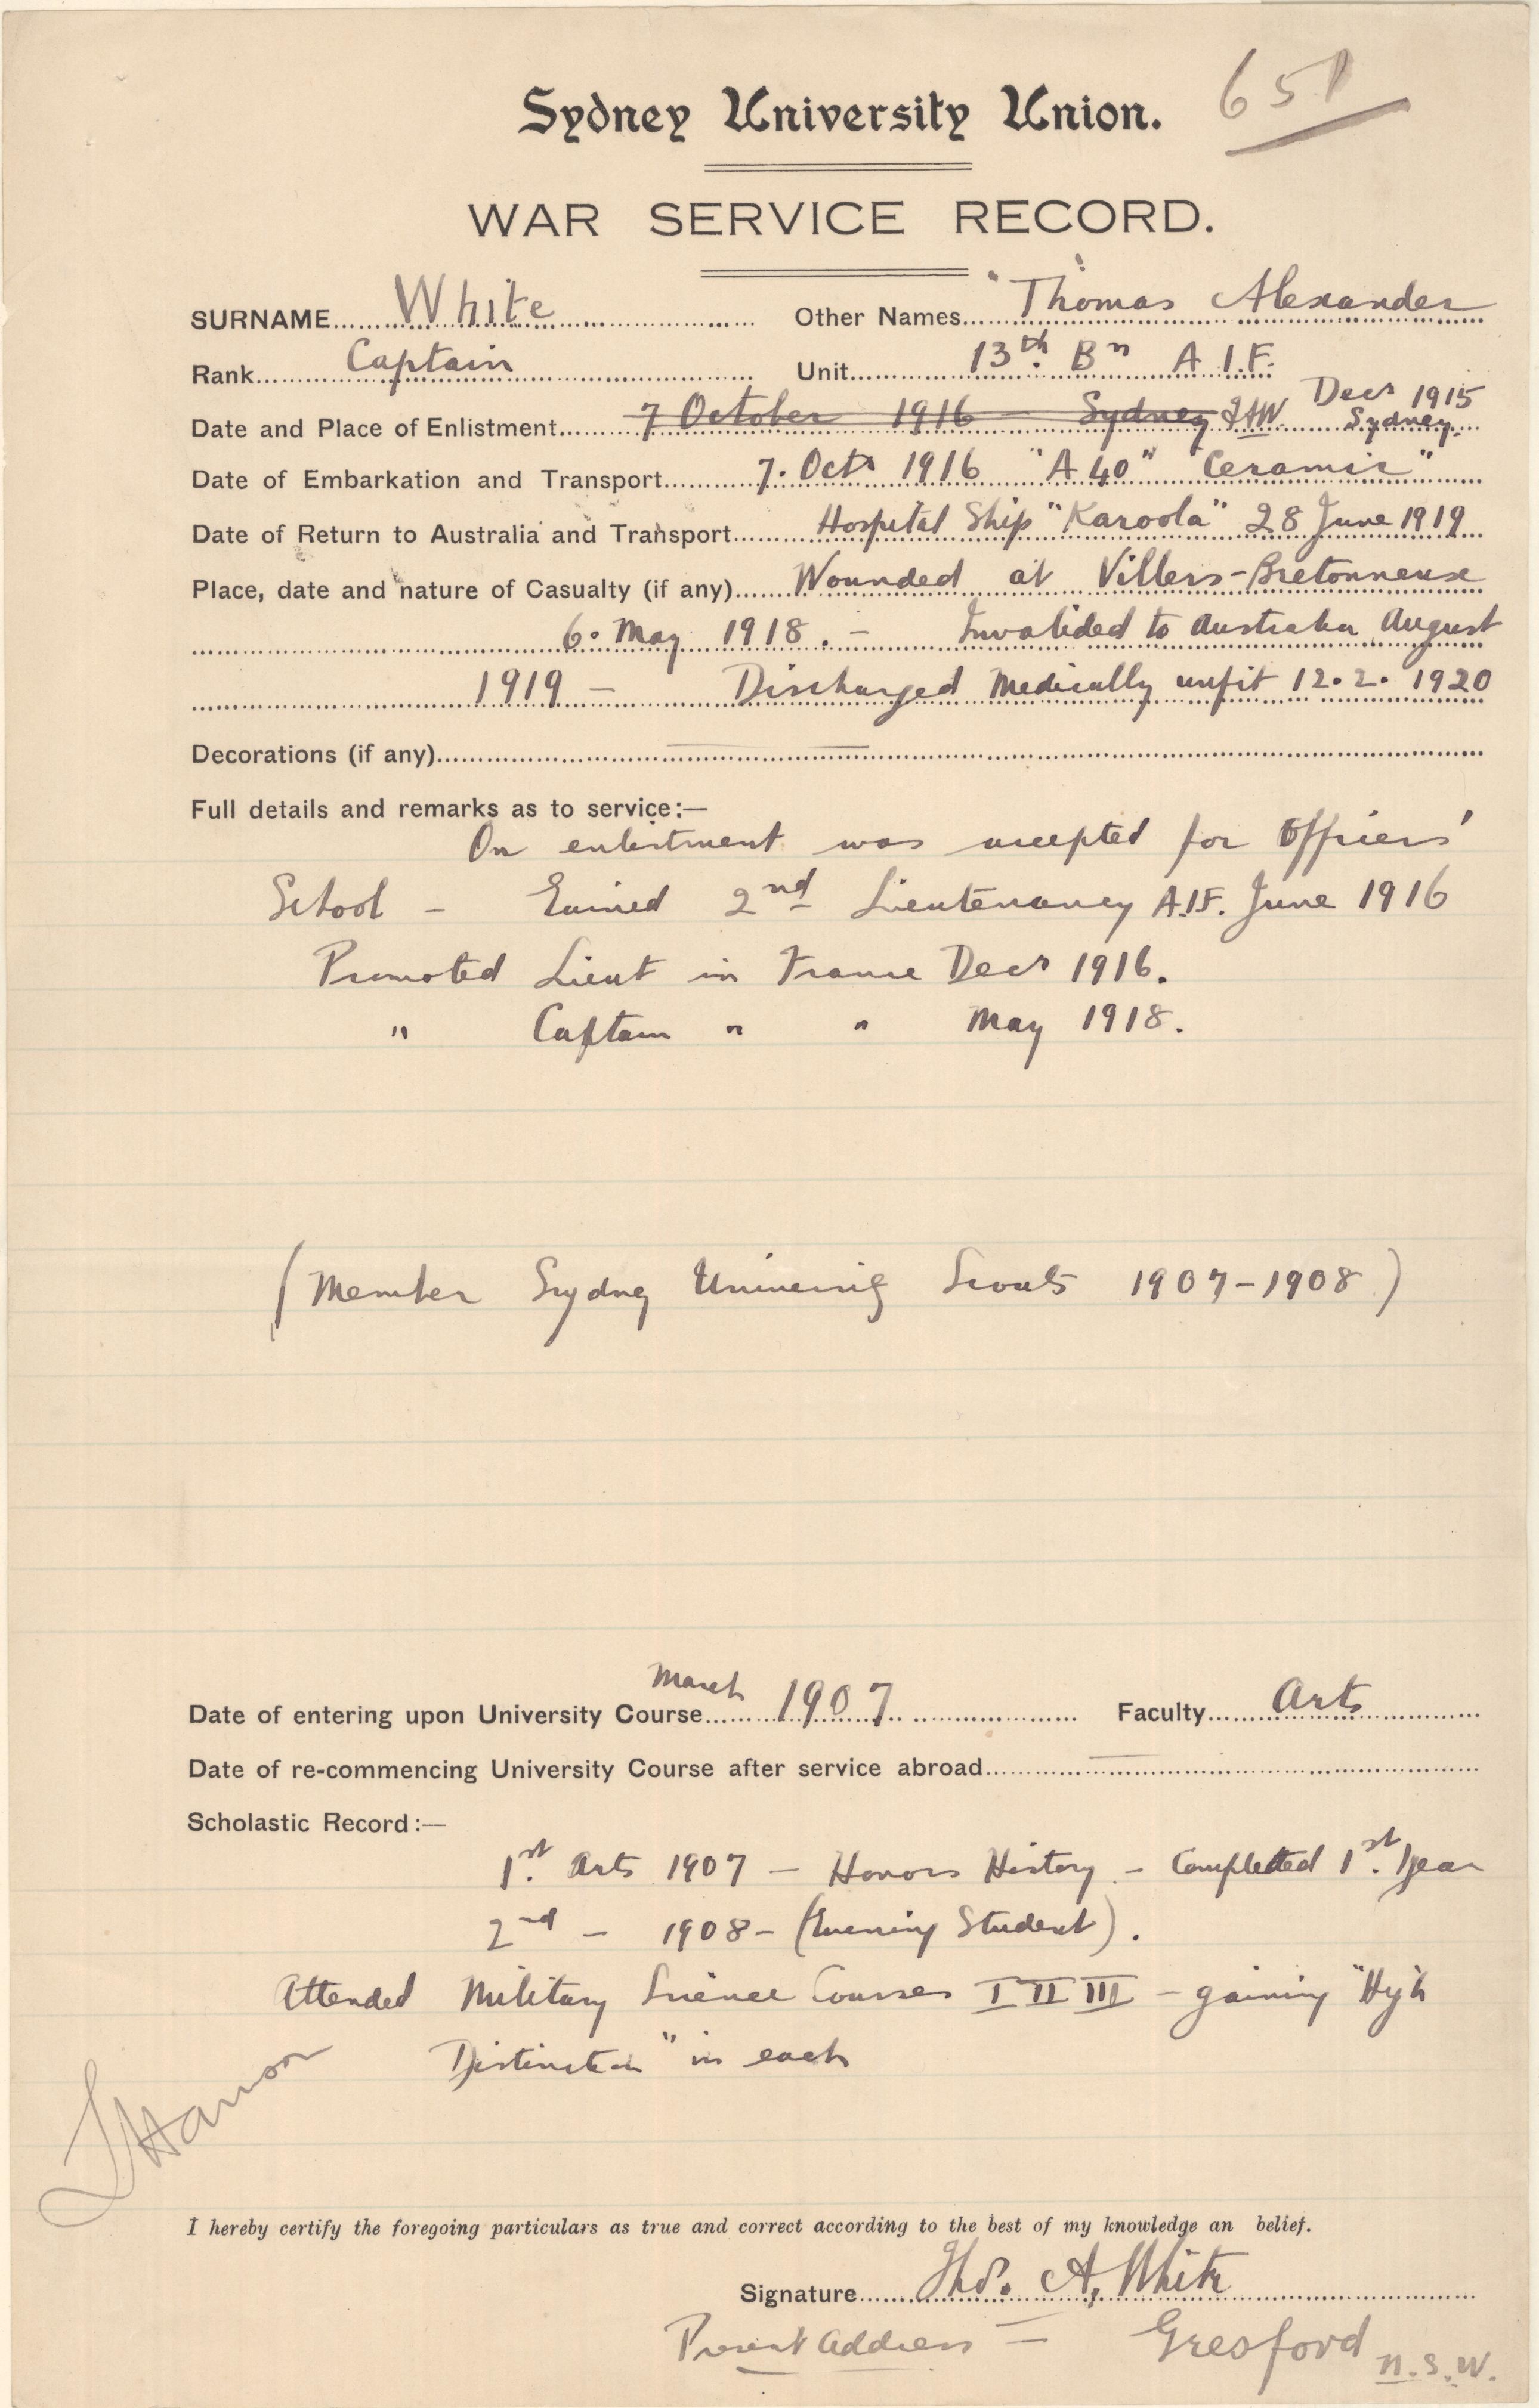 Sydney University Union.
651
WAR SERVICE RECORD.
SURNAME White Other Names Thomas Alexander
Rank Captain Unit 13th. Bn A.I.F.
Decr 1915
Date and Place of Enlistment 7 October 1916 — Sydney TAW. Sydney.
Date of Embarkation and Transport 7. Octr 1916 "A 40" "Ceramic"
Date of Return to Australia and Transport Hospital Ship "Karoola" 28 June 1919
Place, date and nature of Casualty (if any) Wounded at Villers-Bretonneux
6. May 1918. — Invalided to Australia August
1919 — Discharged Medically unfit 12.2.1920
Decorations (if any)
Full details and remarks as to service:—
On enlistment was accepted for Officers'
School — Gained 2nd Lieutenancy A.I.F. June 1916
Promoted Lieut in France Decr 1916.
" Captain " " May 1918.
(Member Sydney University Scouts 1907-1908)
Date of entering upon University Course March 1907 Faculty Arts
Date of re-commencing University Course after service abroad
Scholastic Record:—
1st. Arts 1907 — Honors History — Completed 1st. Year
2nd — 1908 — (Evening Student).
Attended Military Science Courses I II III — gaining "High
Distinction" in each
I hereby certify the foregoing particulars as true and correct according to the best of my knowledge an belief.
Signature Thos. A. White
Present Address — Gresford N.S.W.